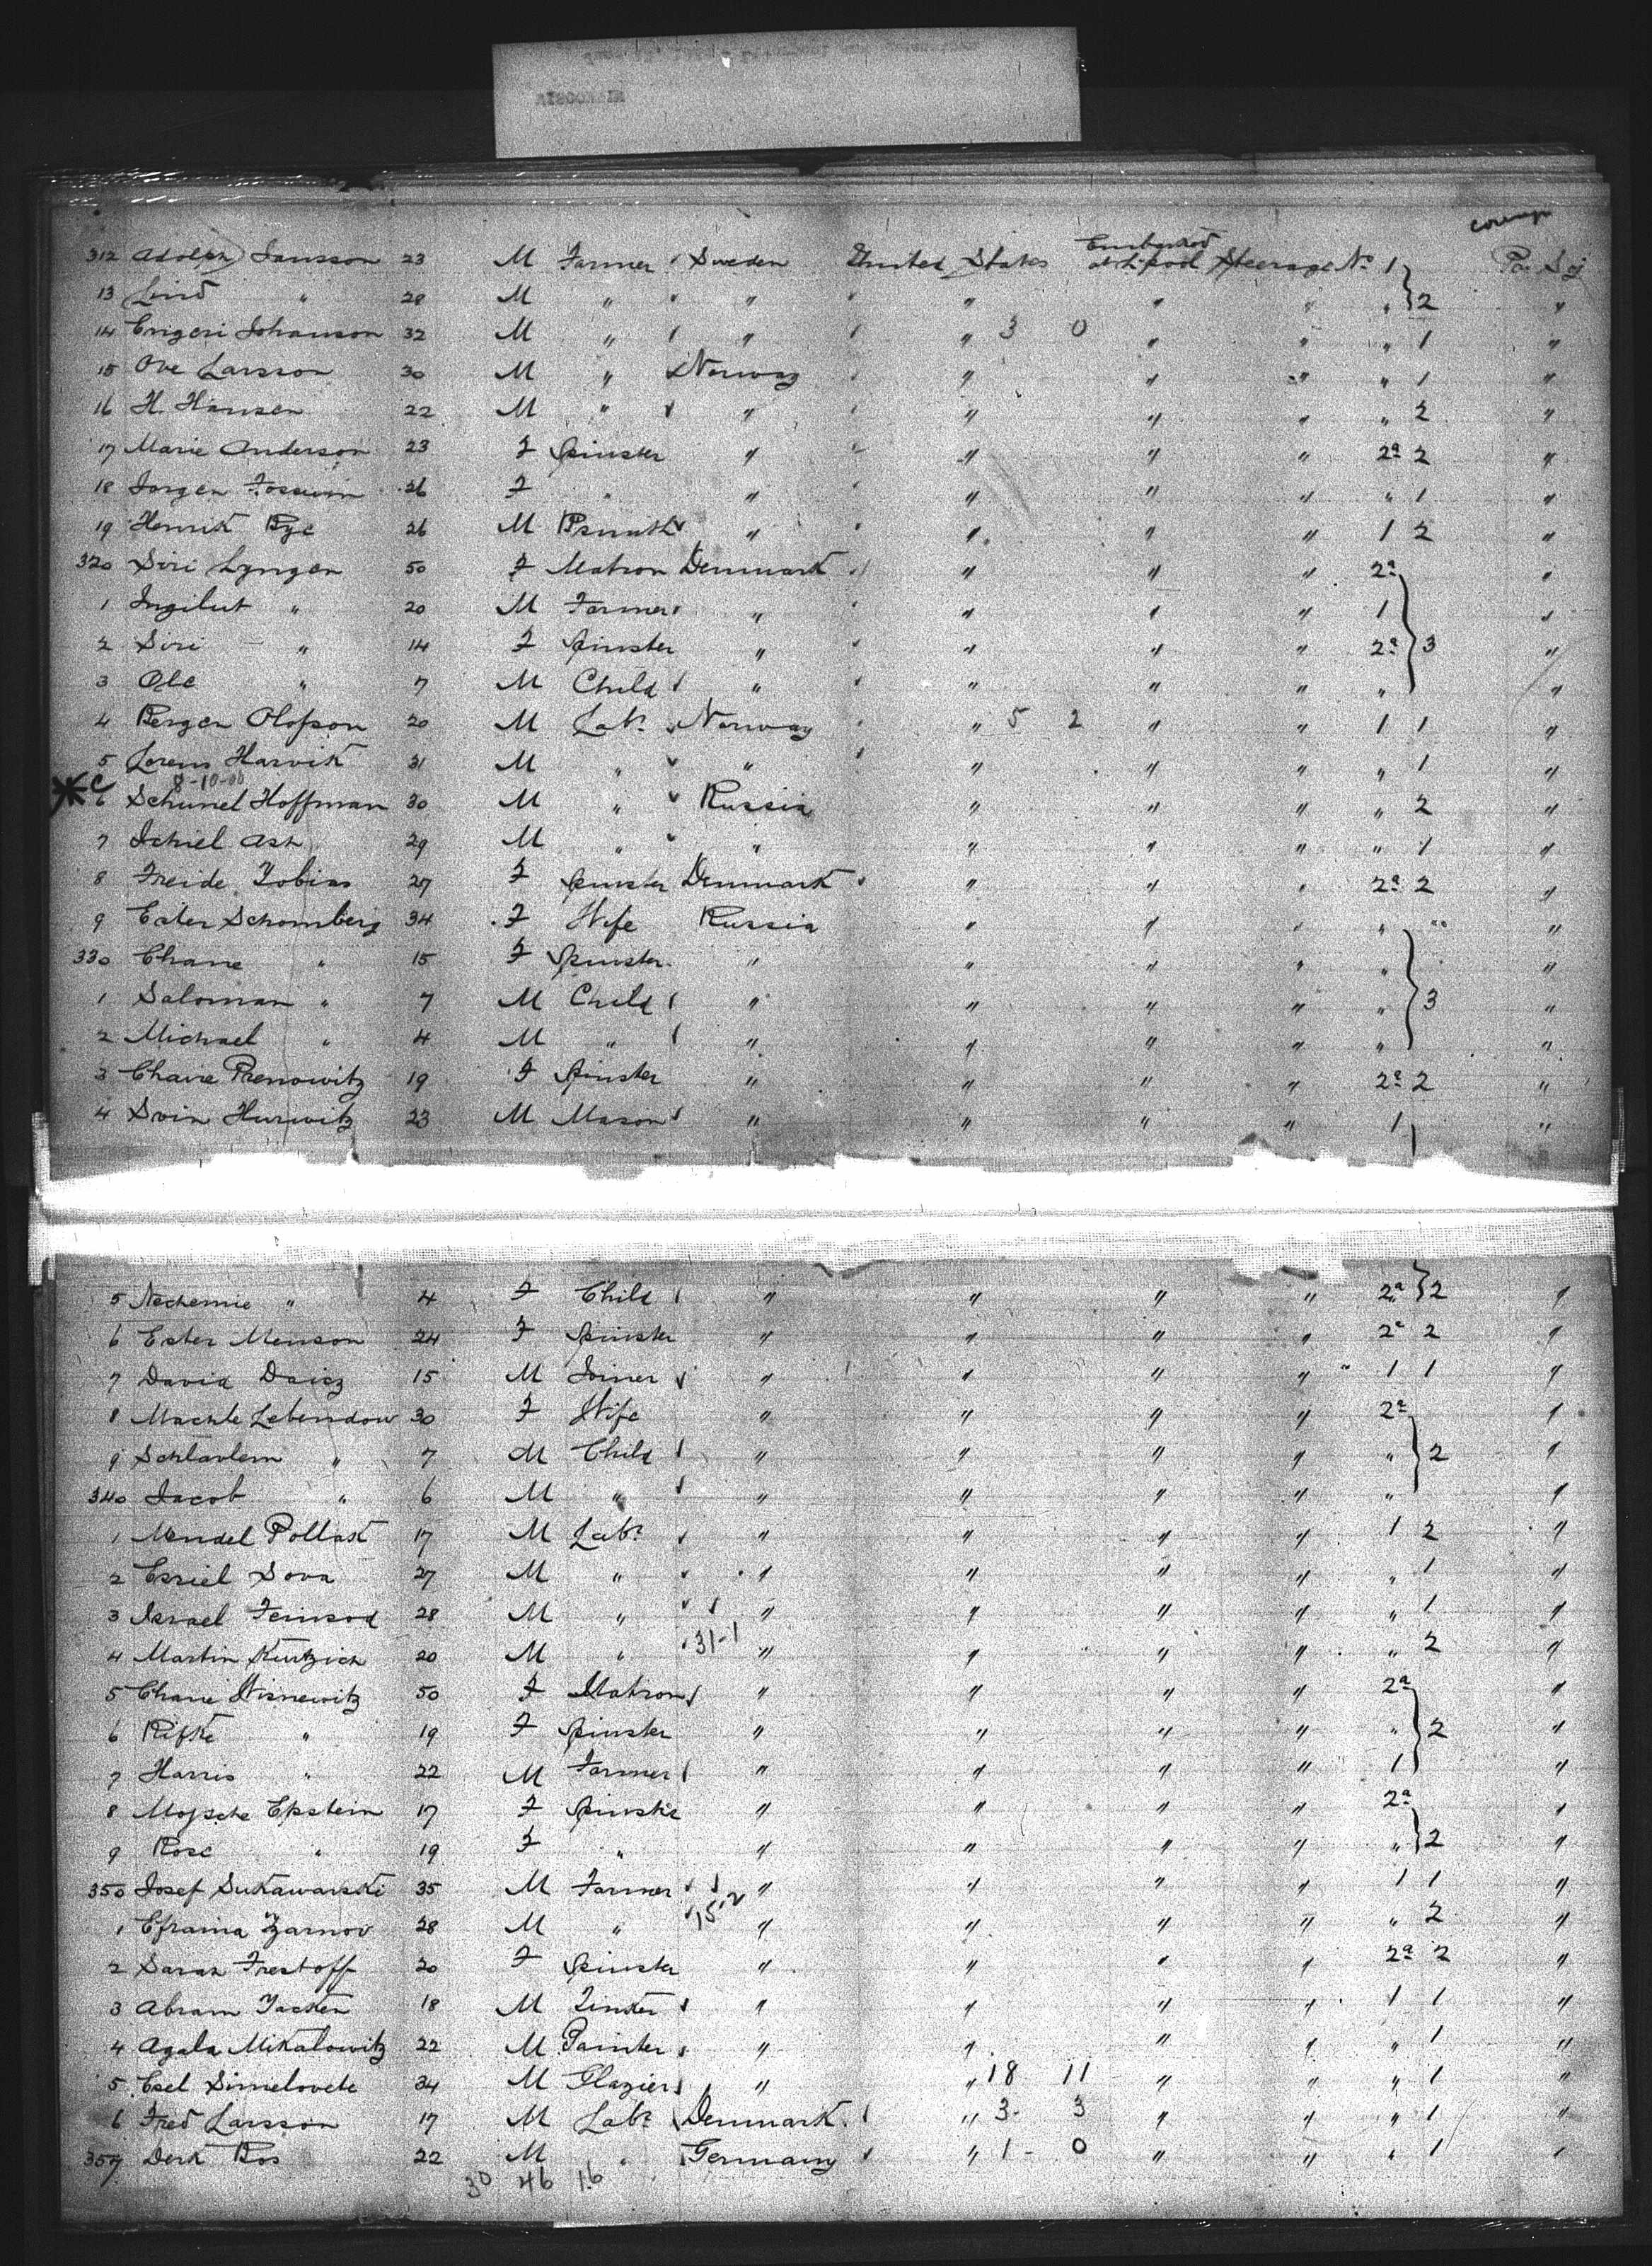 312 Adolph Jansson 23 M Farmer Sweden United States Embarked at L'pool Steerage No 1
13 Lind " 28 M " " " " " " 2 "
14 Johanson 32 M " " " 3 0 " " " 1 "
15 Ove Larsson 30 M " Norway " " " " 1 "
16 H. Hansen 22 M " " " " " " 2 "
17 Marie Anderson 23 F Spinster " " " " 2a 2 "
18 Jorgen Fossum 26 F " " " " " " 1 "
19 Henrik Rye 26 M " " " " 1 2 "
320 Siri Lyngen 50 F Matron Denmark " " " 2a "
1 " 20 M Farmer " " " " 1 "
2 Siri " 14 F Spinster " " " " 2a 3 "
3 Ole " 7 M Child " " " " " "
4 Bergen Olofson 20 M Labr Norway " 5 2 " " 1 1 "
5 Lorens Harvik 31 M " " " " " " 1 "
C 8-10-00
6 Schmel Hoffman 30 M " Russia " " " " 2 "
7 Ichiel Ash 29 M " " " " " " 1 "
8 Freide Tobias 27 F Spinster Denmark " " " 2a 2 "
9 Ester Schomberg 34 F Wife Russia " " " " "
330 Chane " 15 F Spinster " " " " " "
1 Saloman " 7 M Child " " " " " 3 "
2 Michael " 4 M " " " " " " "
3 Chaie Prenowitz 19 F Spinster " " " " 2a 2 "
4 Hurwitz 23 M Mason " " " " 1 "
5 Nechemie " 4 F Child " " " " 2a 2 "
6 Ester Menson 24 F Spinster " " " " 2a 2 "
7 David Daicz 15 M Joiner " " " " 1 1 "
8 Machle Lebendow 30 F Wife " " " " 2a "
9 " 7 M Child " " " " " 2 "
340 Jacob " 6 M " " " " " " "
1 Mendel Pollak 17 M Labr " " " " 1 2 "
2 Esriel Sova 27 M " " " " " " 1 "
3 Israel Feinsod 28 M " " " " " " 1 "
4 Martin 20 M " 31-1 " " " " " 2 "
5 Chane 50 F Matron " " " " 2a "
6 Rifke " 19 F Spinster " " " " " 2 "
7 Harris " 22 M Farmer " " " " 1 "
8 Epstein 17 F Spinster " " " " 2a "
9 Rose " 19 F " " " " " " 2 "
350 Josef Sukawarski 35 M Farmer " " " " 1 1 "
1 Efraina Zarnov 28 M " 15-2 " " " " " 2 "
2 Sarah Frestoff 20 F Spinster " " " " 2a 2 "
3 Abram 18 M " " " " 1 1 "
4 Agala Mikalowitz 22 M Painter " " " " " 1 "
5 Esel 34 M Glazier " " 18 11 " " " 1 "
6 Fred Larsson 17 M Labr Denmark " 3- 3 " " " 1 "
357 Derk Bos 22 M " Germany " 1- 0 " " " 1 "
30 46 16